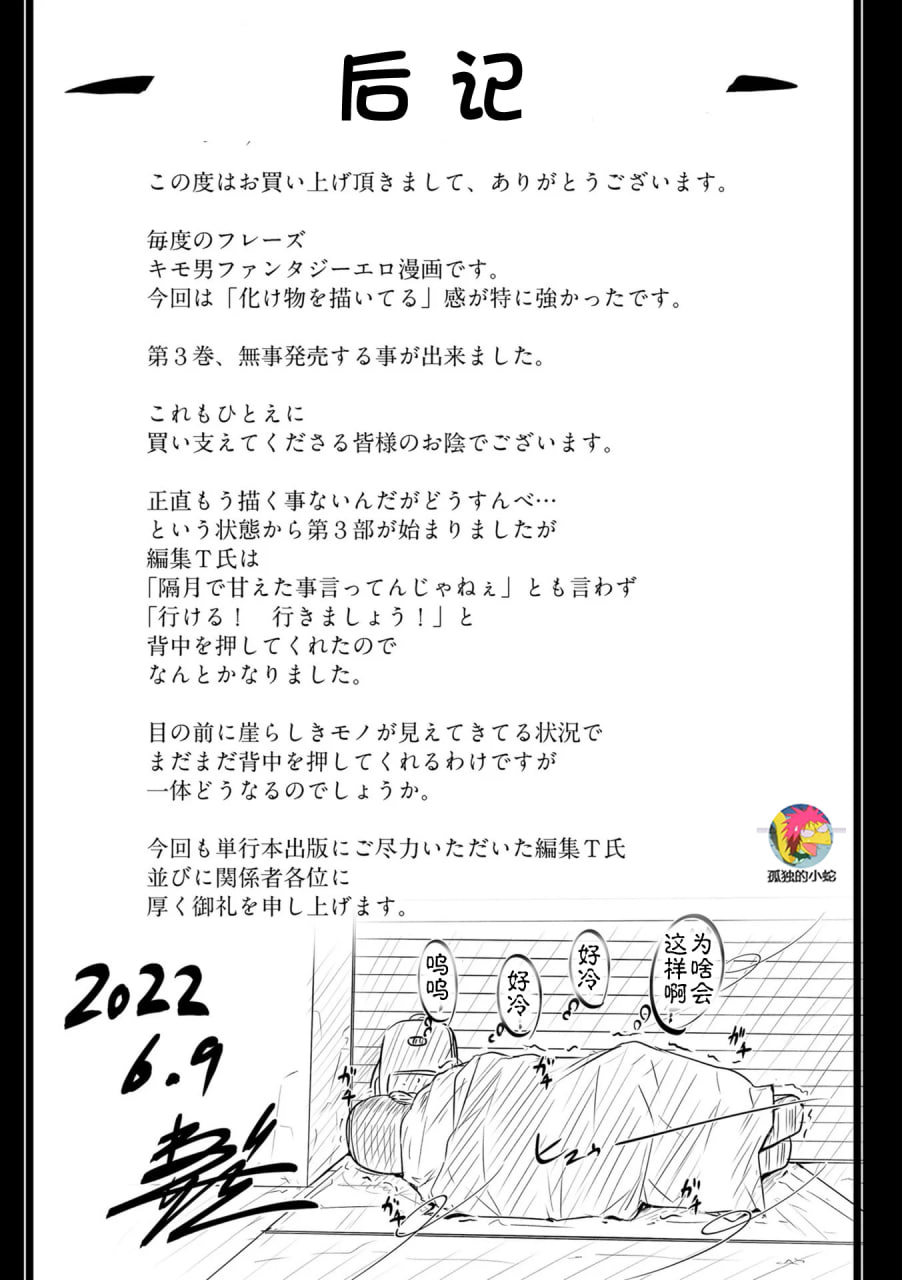 后记
この度はお買い上げ頂きまして、ありがとうございます。
毎度のフレーズ
キモ男ファンタジーエロ漫画です。
今回は「化け物を描いてる」感が特に強かったです。
第３巻、無事発売する事が出来ました。
これもひとえに
買い支えてくださる皆様のお陰でございます。
正直もう描く事ないんだがどうすんべ…
という状態から第３部が始まりましたが
編集Ｔ氏は
「隔月で甘えた事言ってんじゃねぇ」とも言わず
「行ける！　行きましょう！」と
背中を押してくれたので
なんとかなりました。
目の前に崖らしきモノが見えてきてる状況で
まだまだ背中を押してくれるわけですが
一体どうなるのでしょうか。
今回も単行本出版にご尽力いただいた編集Ｔ氏
並びに関係者各位に
厚く御礼を申し上げます。
孤独的小蛇
为啥会
这样啊
好冷
好冷
呜呜
ガチ
ガチ
ガチ
ガチ
ガチ
ヒュゥ
2022
6.9